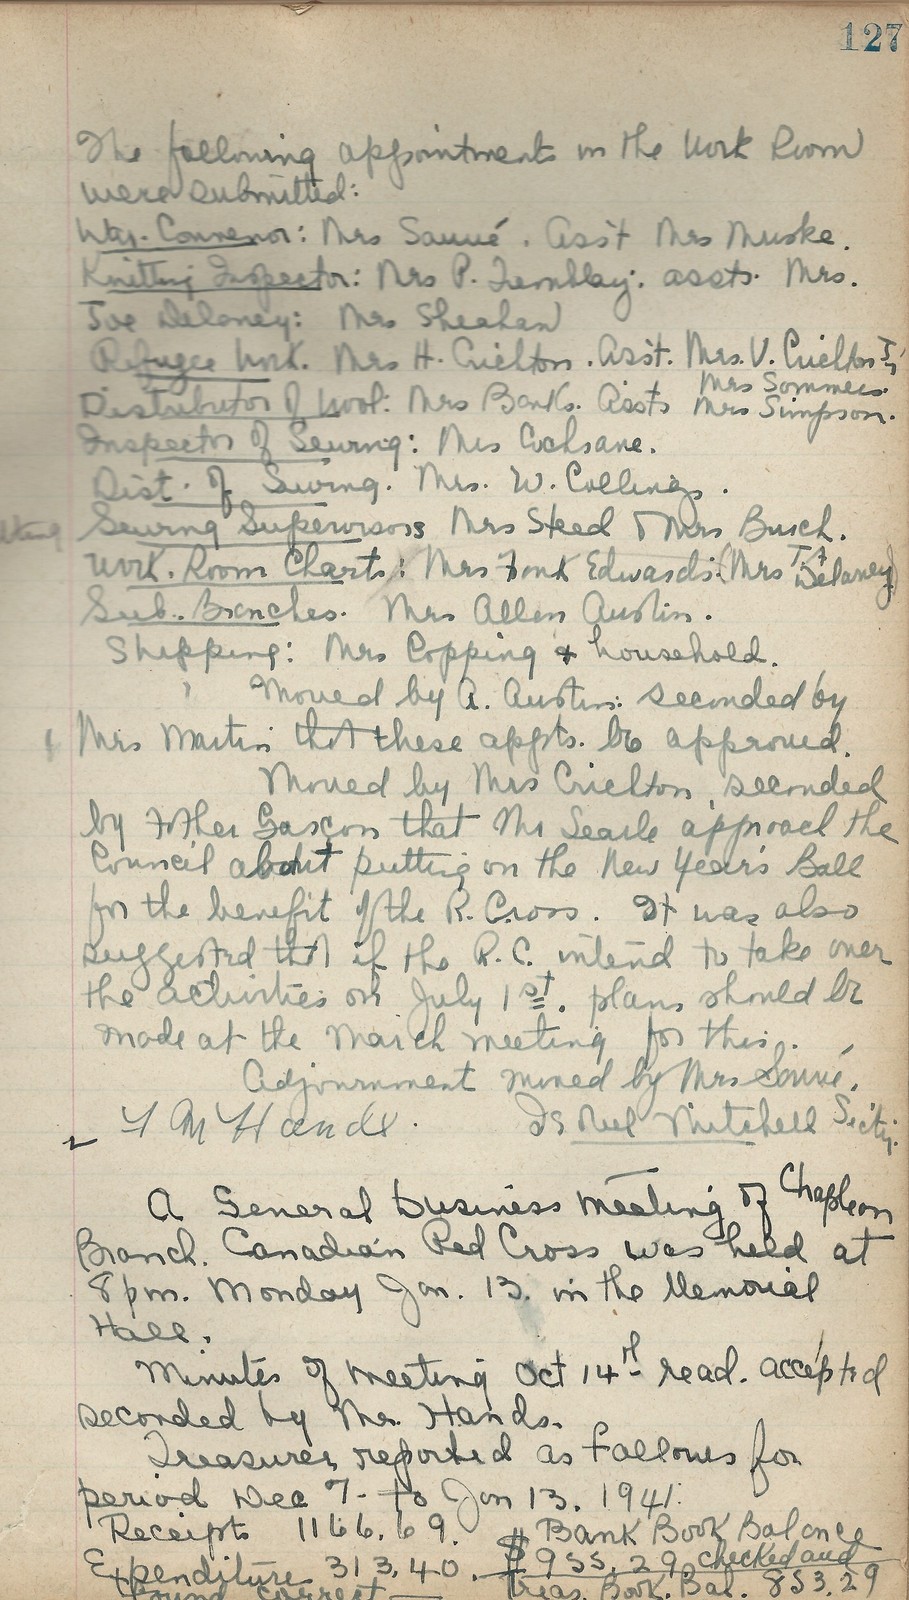 127
The following appointments in the Work Room
were submitted:
Convenor: Mrs Sauvé. Asst Mrs Muske.
Knitting Inspector: Mrs P. Tremblay. assts. Mrs.
Joe Delaney: Mrs Sheehan
Refugee Work. Mrs H. Crichton. Asst. Mrs. V. Crichton
Mrs Sommers.
Distributor of Wool: Mrs Banks. Assts Mrs Simpson.
Inspector of Sewing: Mrs Cochrane.
Dist. of Sewing. Mrs. W. Collings.
Sewing Supervisors Mrs Steed & Mrs Busch.
Work. Room Charts: Mrs Frank Edwards. (Mrs Delaney)
Sub. Branches. Mrs Allen Austin.
Shipping: Mrs Copping & household.
Moved by A. Austin: seconded by
Mrs Martin that these appts. be approved.
Moved by Mrs Crichton, seconded
by Father Gascon that Mr Searle approach the
Council about putting on the New Year's Ball
for the benefit of the R. Cross. It was also
suggested that if the R.C. intend to take over
the activities on July 1st. plans should be
made at the March meeting for this.
Adjournment moved by Mrs Sauvé.
M Hands. Mitchell Sec'ty.
A General business meeting of Chapleau
Branch. Canadian Red Cross was held at
8 pm. Monday Jan. 13. in the Memorial
Hall.
Minutes of meeting Oct 14th read. accepted
seconded by Mr. Hands.
Treasurer reported as follows for
period Dec 7- to Jan 13. 1941.
Receipts 1166.69. Bank Book Balance
Expenditure 313.40. $955.29 checked and
found correct — Treas. Book. Bal. 853.29